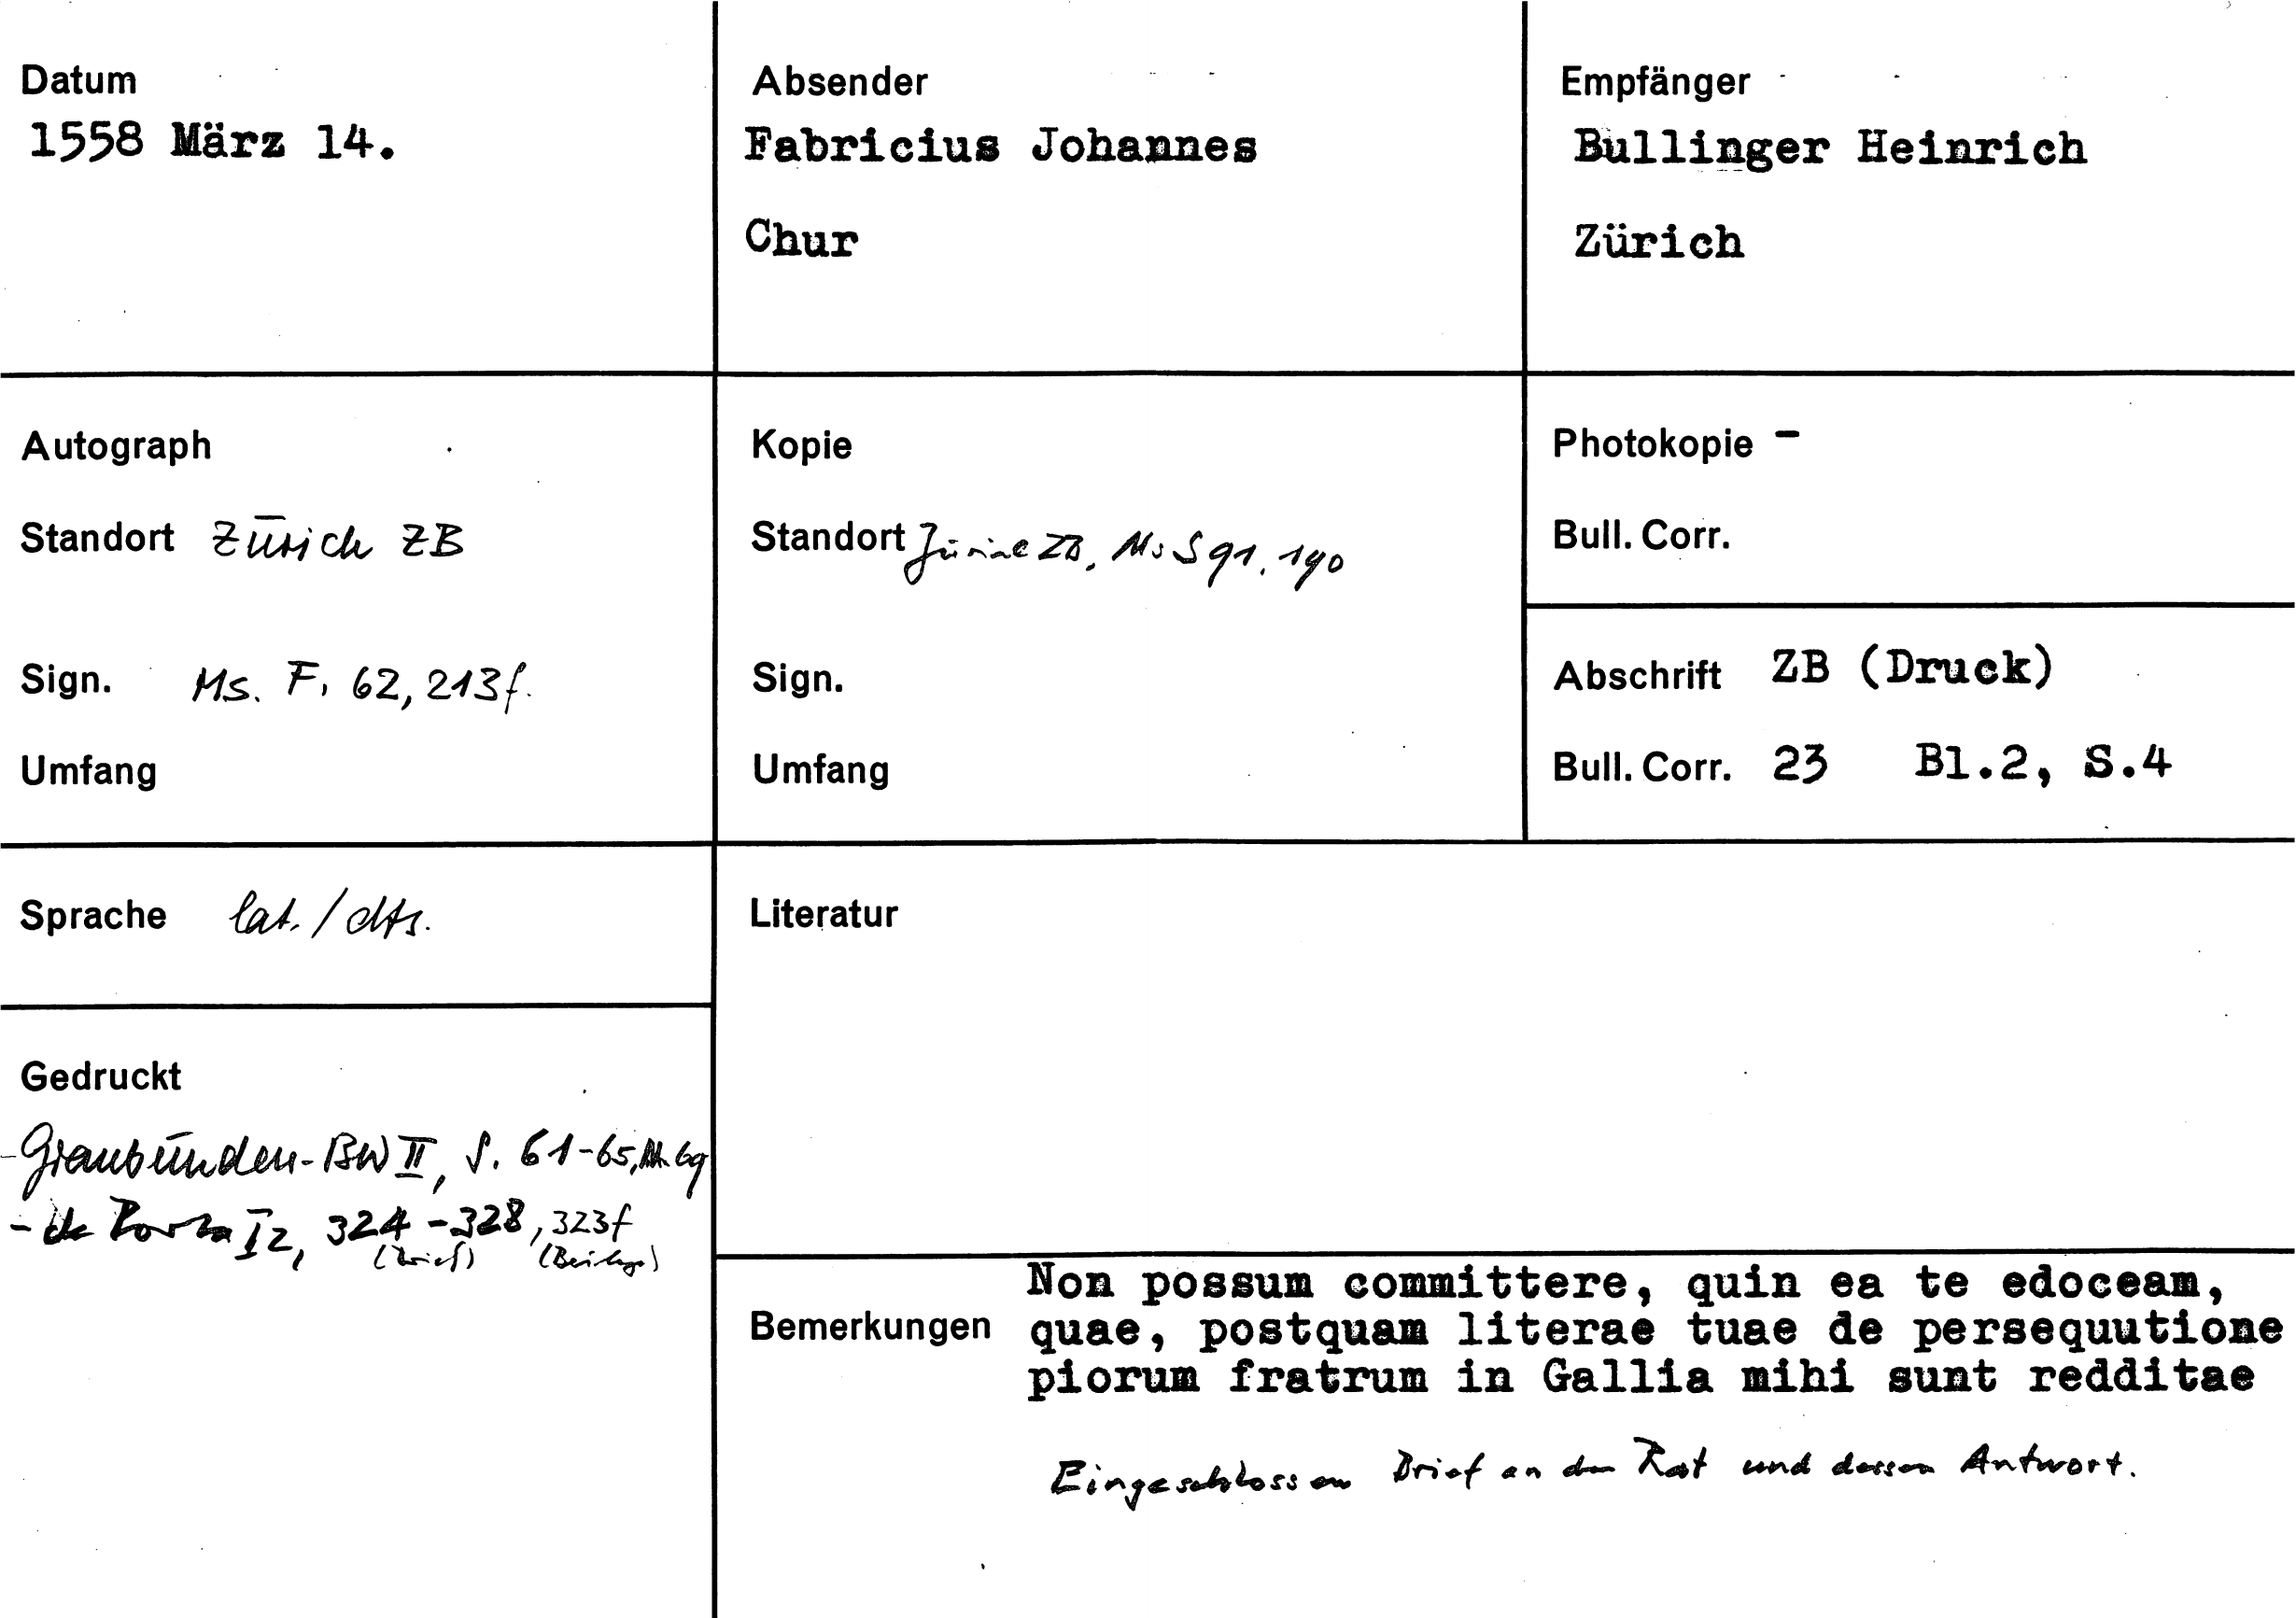 Datum
1558 März 14.
Absender
Fabricius Johannes
Chur
Empfänger
Bullinger Heinrich
Zürich
Autograph
Standort Zürich ZB
Sign. Ms. F. 62, 213f.
Umfang
Kopie
Standort Zürich ZB, Ms S 91, 190
Sign.
Umfang
Photokopie -
Bull. Corr.
Abschrift ZB (Druck)
Bull. Corr. 23 Bl.2, S.4
Sprache lat./dts.
Literatur
Gedruckt
- Graubünden-BW II, S. 61-65, 69
- de Porta I2, 324-328, 323f
(Brief) (Beilage)
Bemerkungen
Non possum committere, quin ea te edoceam,
quae, postquam literae tuae de persequutione
piorum fratrum in Gallia mihi sunt redditae
Eingeschlossen Brief an den Rat und dessen Antwort.